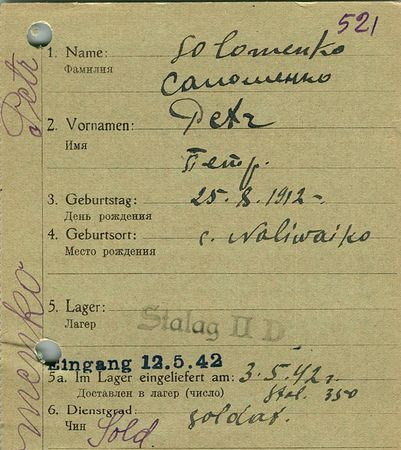 521
1. Name: Solomenko
Фамилия Саломенко
2. Vornamen: Petr
Имя Петр.
3. Geburtstag: 25.8.1912
День рождения
4. Geburtsort: c. Naliwaiko
Место рождения
5. Lager: Stalag II D
Лагер
Eingang 12.5.42
5a. Im Lager eingeliefert am: 3.5.42г
Доставлен в лагер (число) Stal. 350
6. Dienstgrad: soldat.
Чин Sold.
Petr
menko